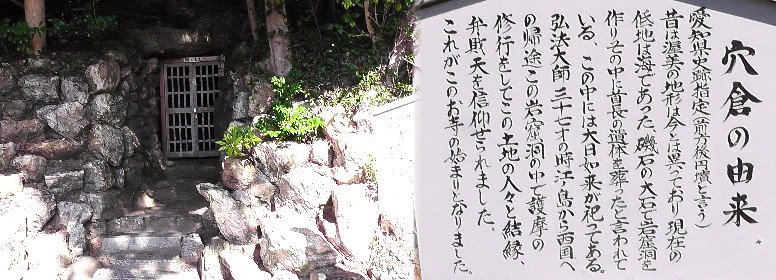 穴倉の由来
愛知県史跡指定(前方後円墳と言う)
昔は渥美の地形は今とは異っており現在の
低地は海であった。磯石の大石で岩窟洞を
作りその中に首長の遺体を葬ったと言われて
いる、この中には大日如来が祀ってある。
弘法大師三十七才の時江ノ島から西国へ
の帰途この岩窟洞の中で護摩の
修行をしてこの土地の人々と結縁、
弁財天を信仰せられました。
これがこのお寺の始まりとなりました。